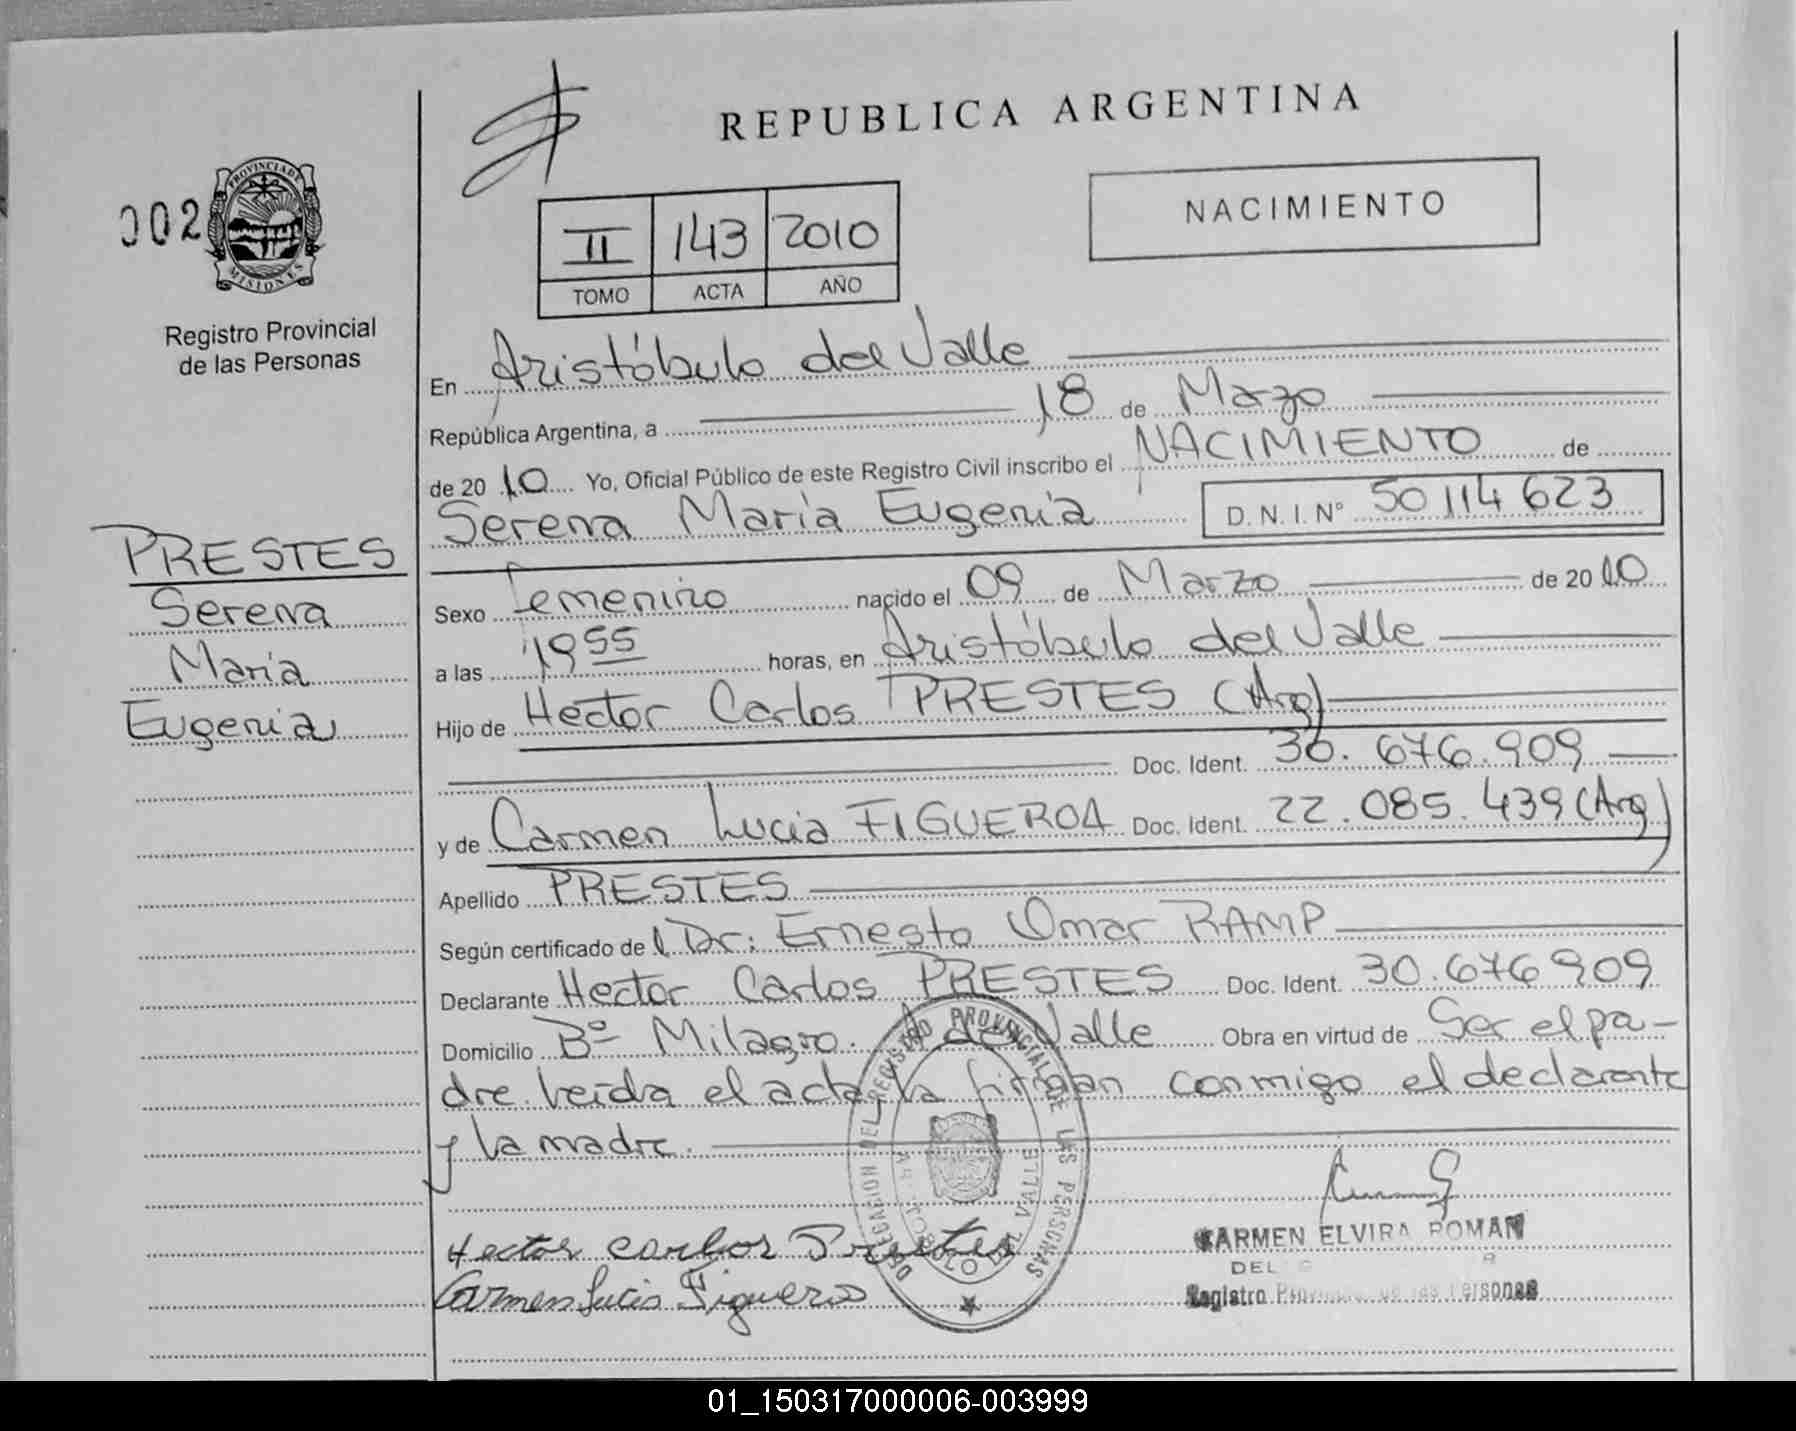 REPUBLICA ARGENTINA
002
PROVINCIA DE
MISIONES
Registro Provincial
de las Personas
II 143 2010
TOMO ACTA AÑO
NACIMIENTO
En Aristóbulo del Valle
República Argentina, a 18 de Marzo
de 2010 Yo, Oficial Público de este Registro Civil inscribo el NACIMIENTO de
Serena María Eugenia D.N.I. Nº 50114623
PRESTES
Serena
María
Eugenia
Sexo Femenino nacido el 09 de Marzo de 2010
a las 1955 horas, en Aristóbulo del Valle
Hijo de Hector Carlos PRESTES (Arg)
Doc. Ident. 30.676.909
y de Carmen Lucia FIGUEROA Doc. Ident. 22.085.439 (Arg)
Apellido PRESTES
Según certificado de l Dr: Ernesto Omar RAMP
Declarante Hector Carlos PRESTES Doc. Ident. 30.676909
Domicilio Bº Milagro. A del Valle Obra en virtud de Ser el pa-
dre leída el acta la firman conmigo el declarante
y la madre.
DELEGACION DEL REGISTRO PROVINCIAL DE LAS PERSONAS
ARISTOBULO DEL VALLE
Hector carlos Prestes
Carmen Lucia Figueroa
CARMEN ELVIRA ROMAN
DEL
Registro Provincial de las Personas
01_150317000006-003999